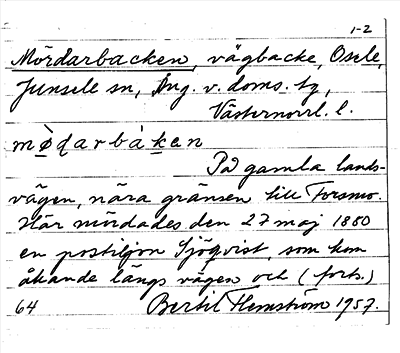 1-2
Mördarbacken, vägbacke, Osele,
Junsele sn, Ång. v. doms. tg,
Västernorrl. l.
mö̀ḍarbàken
På gamla lands-
vägen, nära gränsen till Forsmo.
Här mördades den 27 maj 1880
en postiljon Sjöqvist, som kom
åkande längs vägen och (forts.)
64 Bertil Flemström 1957.